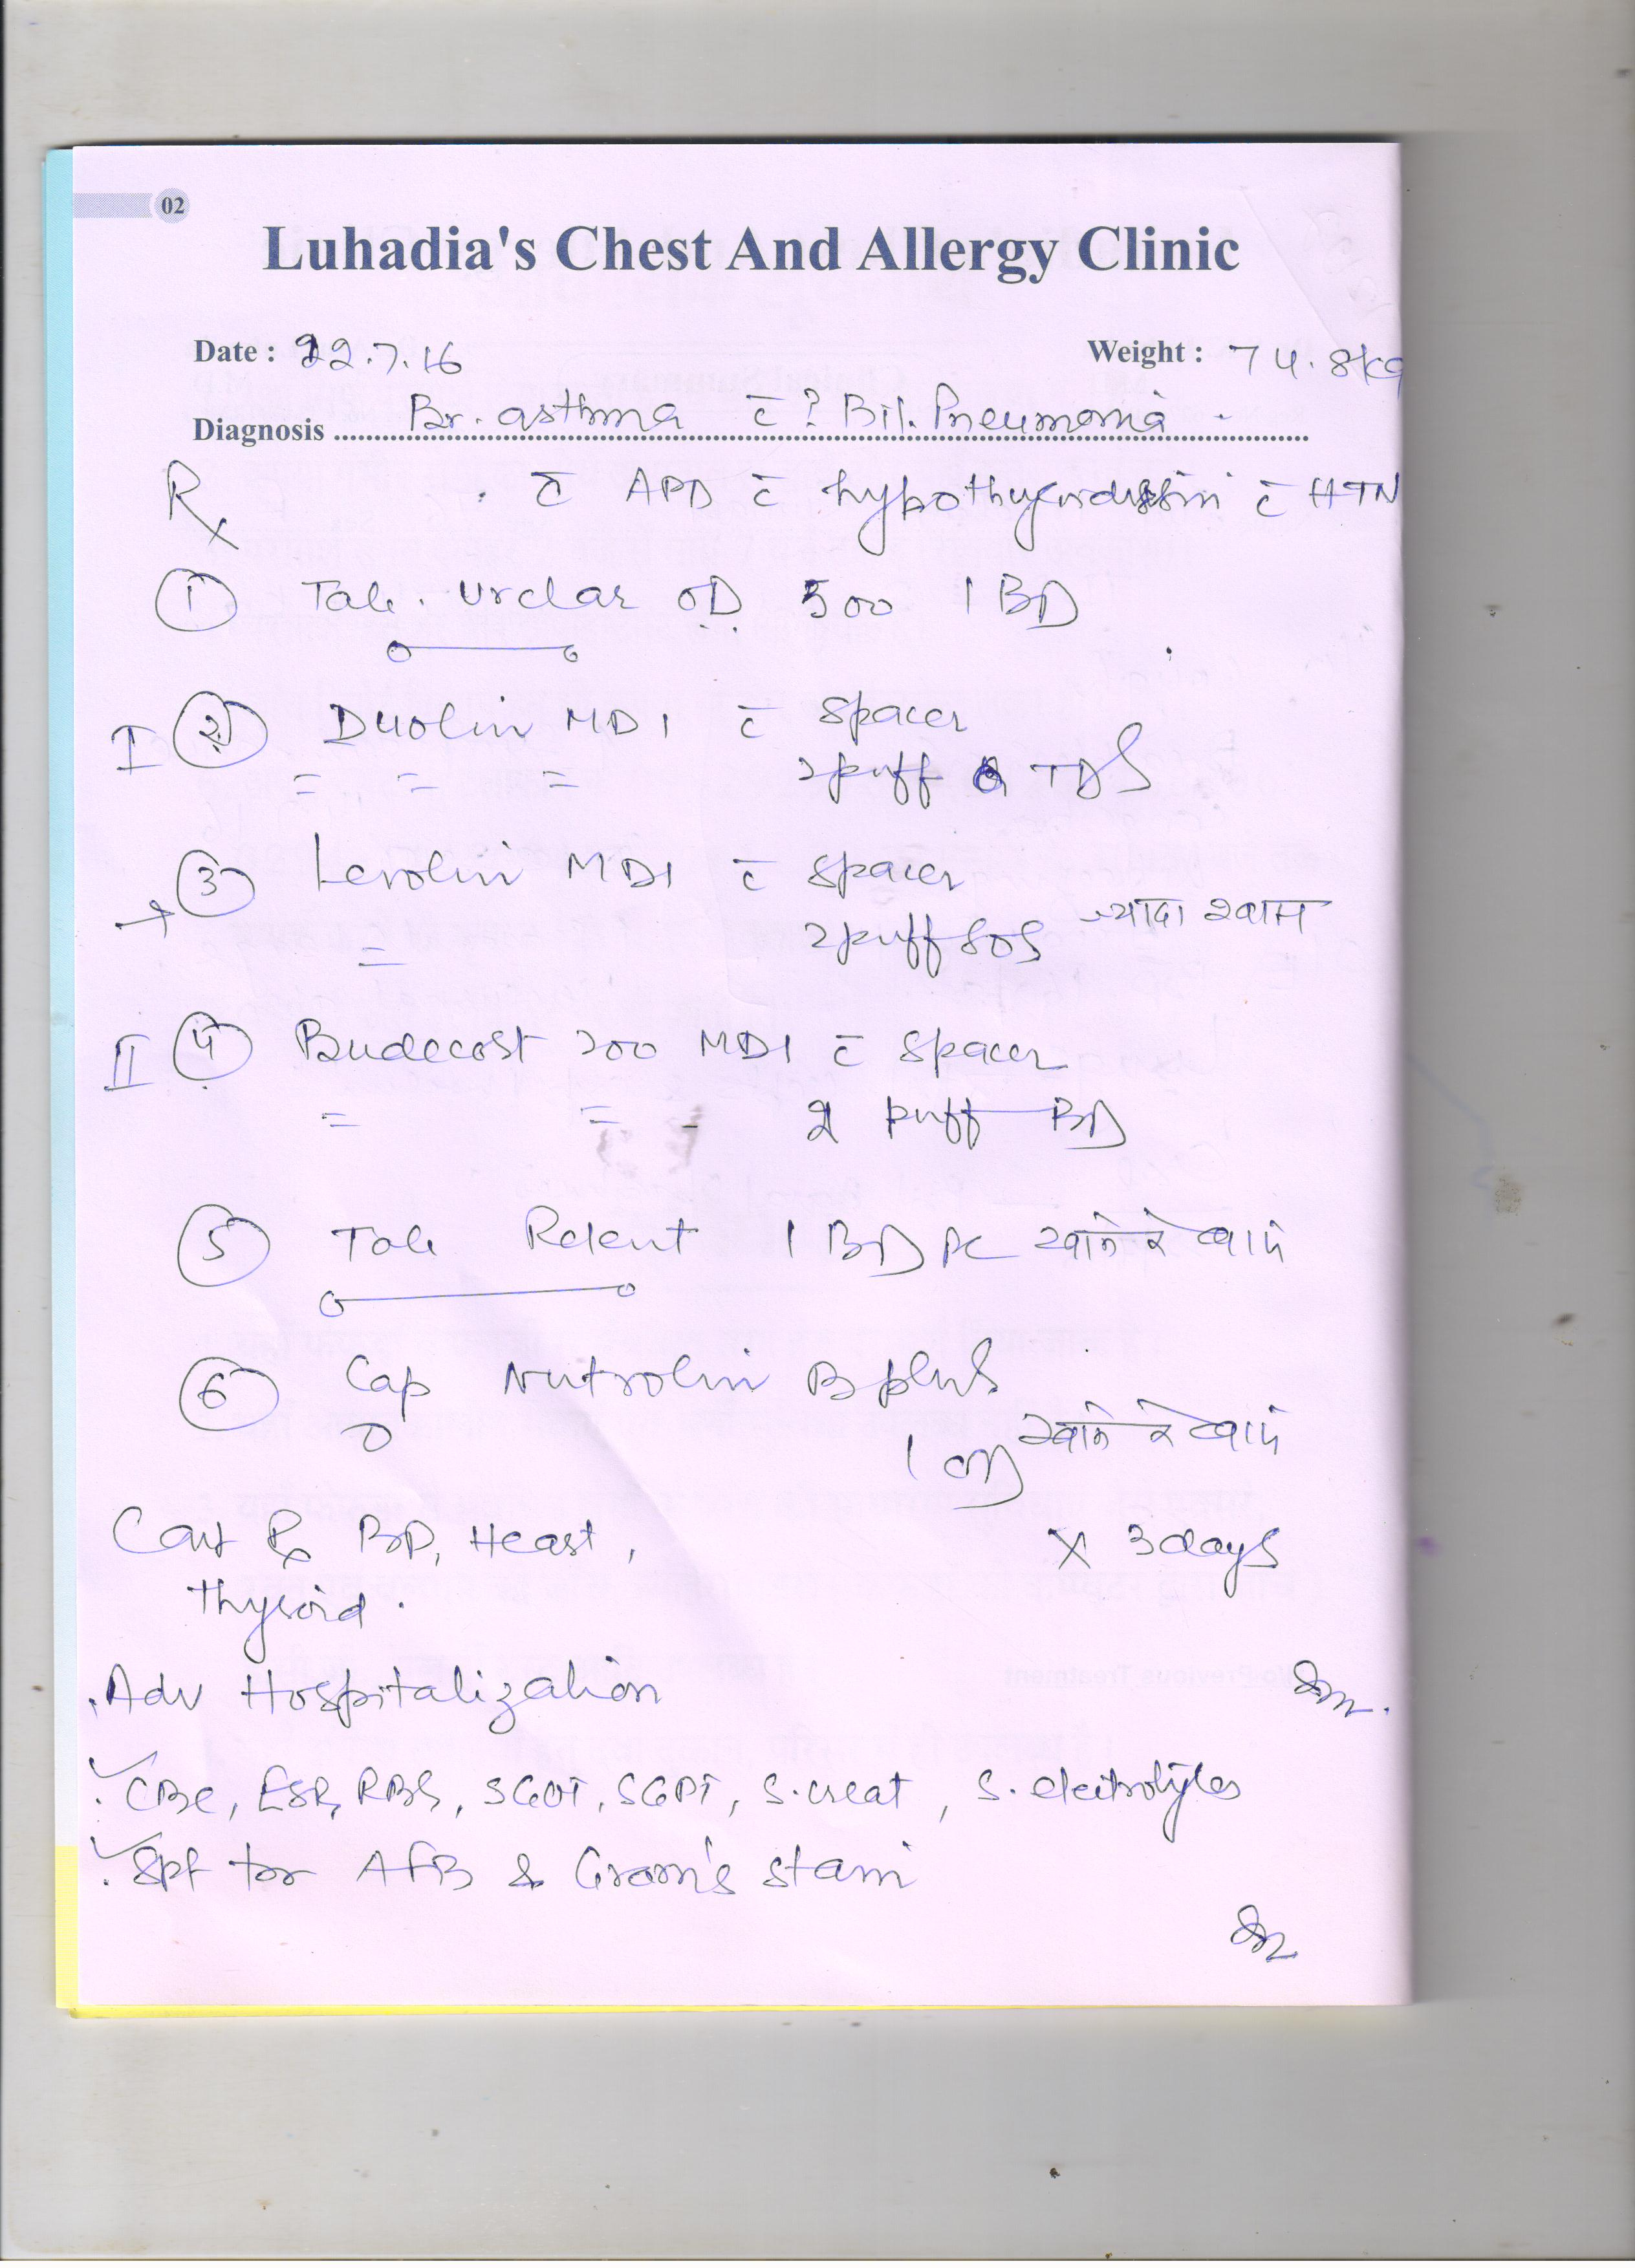 02
Luhadia's Chest And Allergy Clinic
Date : 22.7.16 Weight : 74.8kg
Diagnosis Br. asthma c̄ ? Bil. Pneumonia
Rx c̄ APD c̄ hypothyroidism c̄ HTN
① Tab. Urclar OD 500 1 BD
I ② Duolin MDI c̄ spacer
2 puff TDS
→ ③ Levolin MDI c̄ spacer
2 puff SOS ज्यादा श्वास
II ④ Budecost 200 MDI c̄ spacer
2 puff BD
⑤ Tab Relent 1 BD PC खाने के बाद
⑥ Cap Nutrolin B plus
1 OD खाने के बाद
Cont Rx BP, Heart, x 3 days
thyroid.
Adv Hospitalization
✓ CBC, ESR, RBS, SGOT, SGPT, S. creat, S. electrolytes
✓ Spt for AFB & Gram's stain